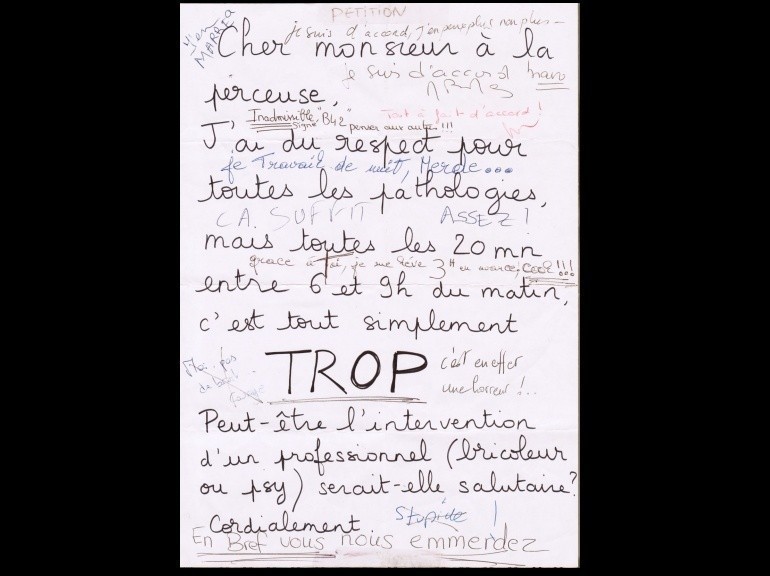 PETITION
J'en MARRE
je suis d'accord, j'en peux plus non plus –
Cher monsieur à la
je suis d'accord
perceuse,
Inadmissible. Signé "B42" penser aux autres !!!
Tout à fait d'accord !
J'ai du respect pour
je Travail de nuit, Merde...
toutes les pathologies,
ÇA SUFFIT ASSEZ !
mais toutes les 20 mn
grace à toi, je me lève 3H en avance, cool !!!
entre 6 et 9h du matin,
c'est tout simplement
TROP
Moi, pas de
c'est en effet
une horreur !..
Peut-être l'intervention
d'un professionnel (bricoleur
ou psy) serait-elle salutaire?
Stupide !
Cordialement
En Bref vous nous emmerdez